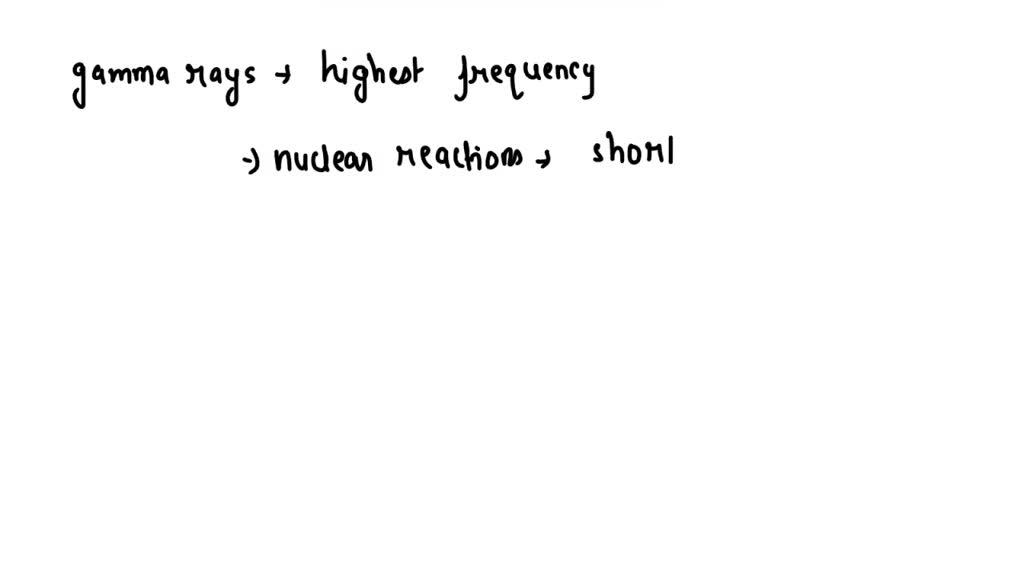 gamma rays → highest frequency
→ nuclear reactions → shorl